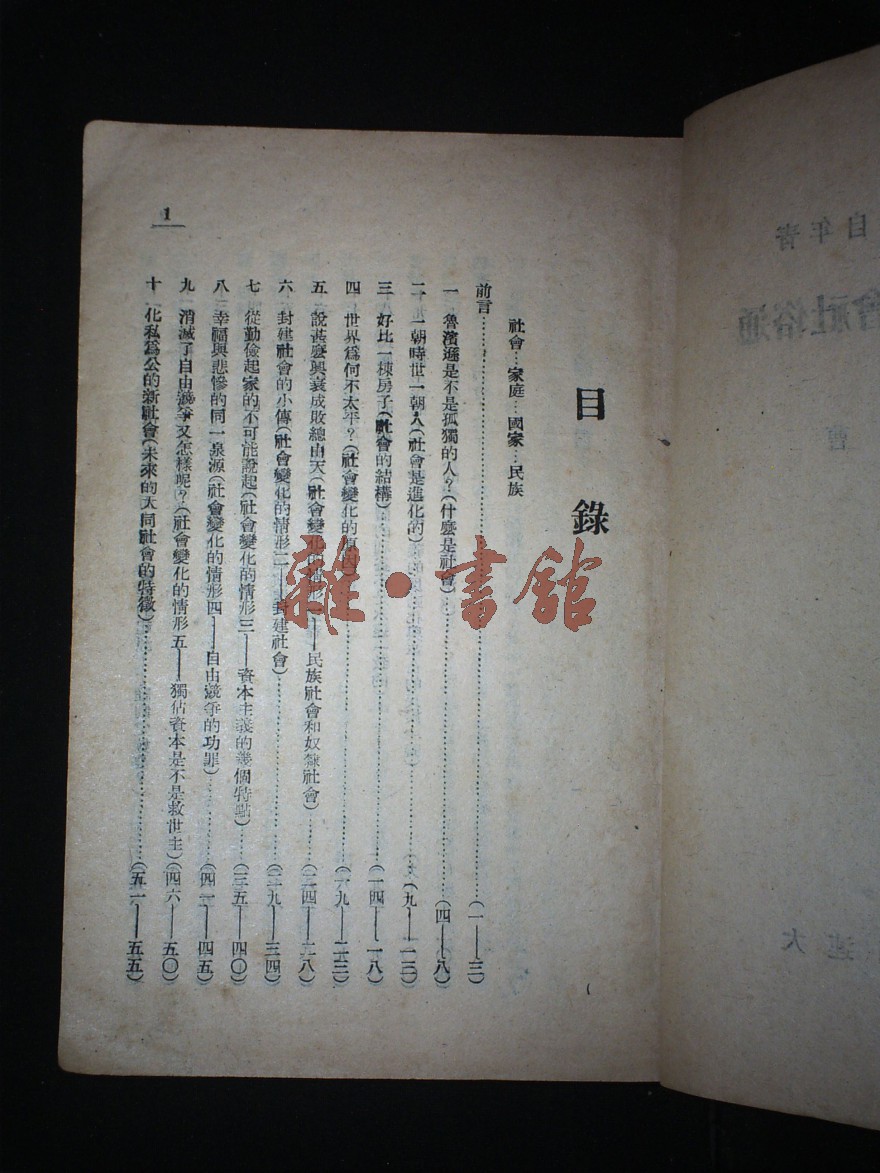 目錄
社會…家庭…國家…民族
前言……(一——三)
一 魯濱遜是不是孤獨的人?(什麽是社會)……(四——八)
二 一朝時世一朝人(社會是進化的)……(九——一三)
三 好比一棟房子(社會的結構)……(一四——一八)
四 世界爲何不太平?(社會變化的原因)……(一九——二三)
五 說甚麽興衰成敗總由天(社會變化的情形一——民族社會和奴隸社會)(二四——二八)
六 封建社會的小傳(社會變化的情形二——封建社會)……(二九——三四)
七 從勤儉起家的不可能說起(社會變化的情形三——資本主義的幾個特點)……(三五——四〇)
八 幸福與悲慘的同一泉源(社會變化的情形四——自由競爭的功罪)……(四一——四五)
九 消滅了自由競爭又怎樣呢?(社會變化的情形五——獨佔資本是不是救世主)(四六——五〇)
十 化私爲公的新社會(未來的大同社會的特徵)……(五一——五五)
1
雜·書館
青年自
通俗社會
曹
大連